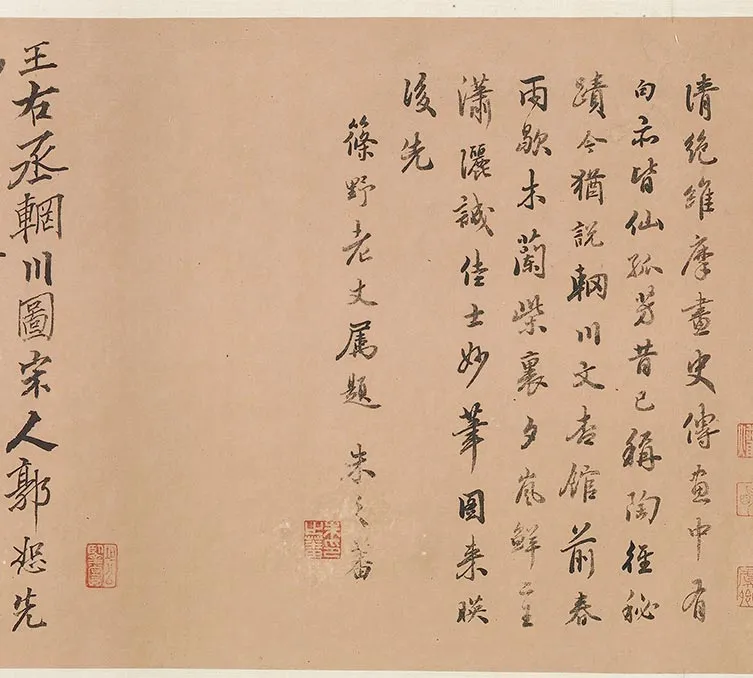 清絶維摩畫史傳畫中有
句亦皆仙孤芳昔已稱陶徑秘
蹟今猶說輞川文杏館前春
雨歇木蘭柴裏夕嵐鮮二
瀟灑誠佳士妙筆圖來暎
後先
篠野老丈属題 朱之蕃
王右丞輞川圖宋人郭恕先